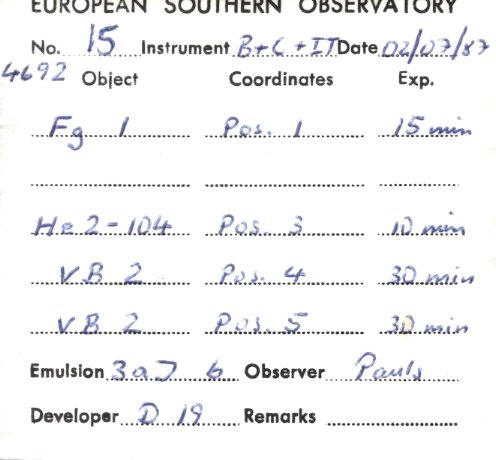 EUROPEAN SOUTHERN OBSERVATORY
No. 15 Instrument B+C+IT Date 02/07/87
4692 Object Coordinates Exp.
Fg 1 Pos. 1 15 min
He 2-104 Pos. 3 10 min
VB 2 Pos. 4 30 min
VB 2 Pos. 5 30 min
Emulsion 3aJ b Observer Pauls
Developer D 19 Remarks